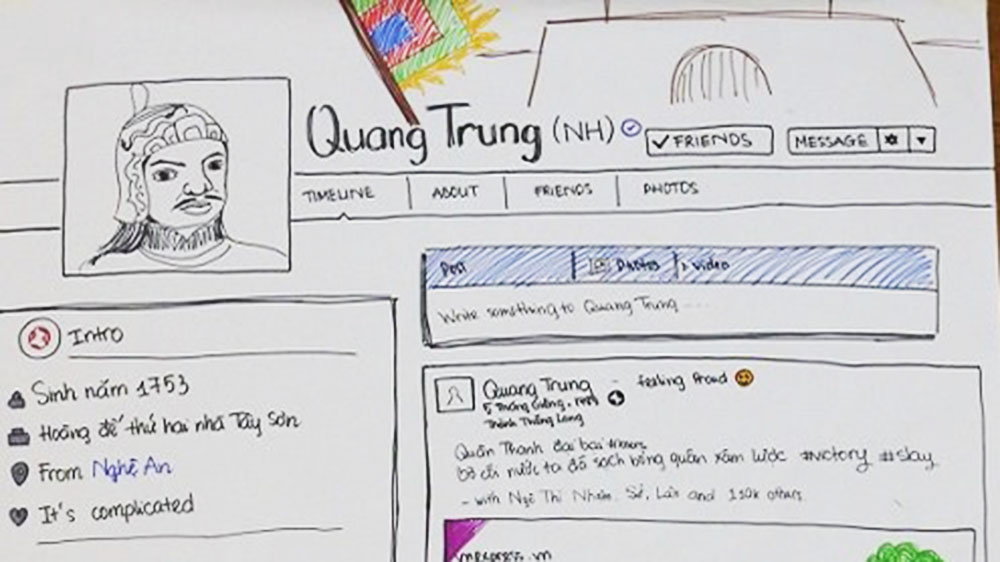 Quang Trung (NH)
✓ FRIENDS
MESSAGE
TIMELINE
ABOUT
FRIENDS
PHOTOS
Post
Photos
Video
Write something to Quang Trung
Intro
Sinh năm 1753
Hoàng đế thứ hai nhà Tây Sơn
From Nghệ An
It's complicated
Quang Trung - feeling Proud
5 Tháng Giêng, 1789
Thành Thăng Long
Quân Thanh đại bại
bờ cõi nước ta đã sạch bóng quân xâm lược #victory #slay
- with Ngô Thì Nhậm, Sở, Lân and 110k others